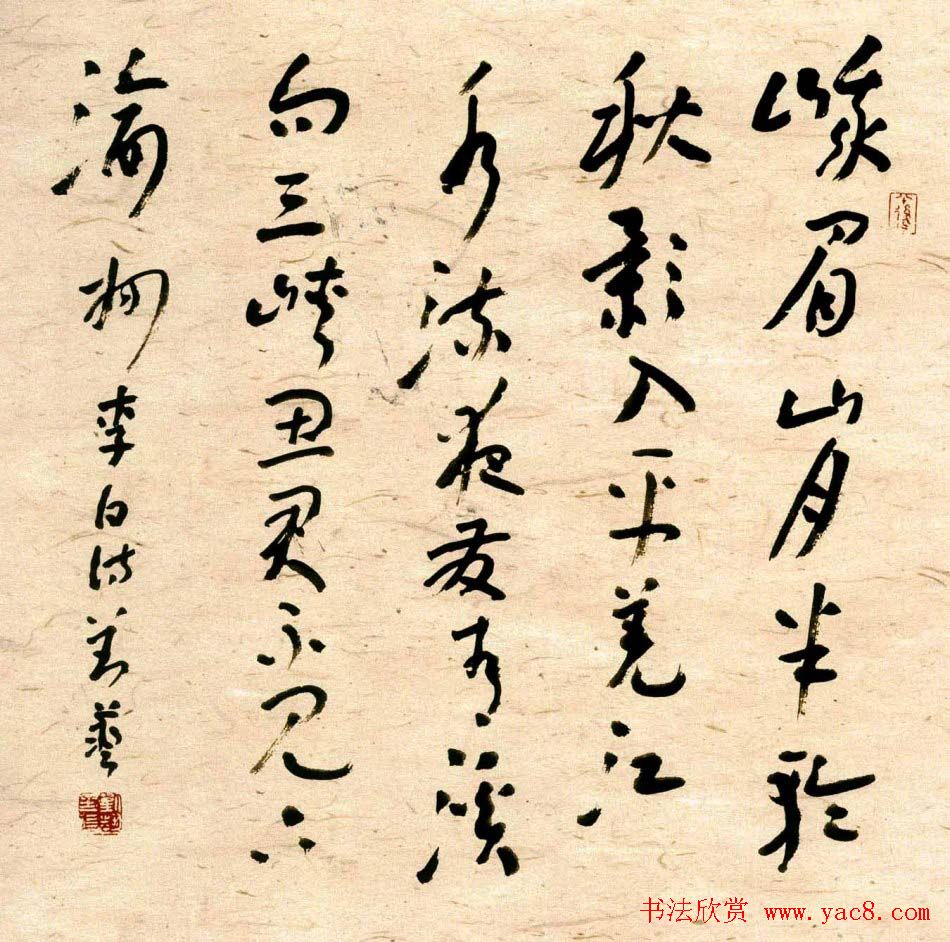 峨眉山月半輪
秋影入平羌江
水流夜發清溪
向三峽思君不見下
渝州李白詩劉藝
书法欣赏 www.yac8.com